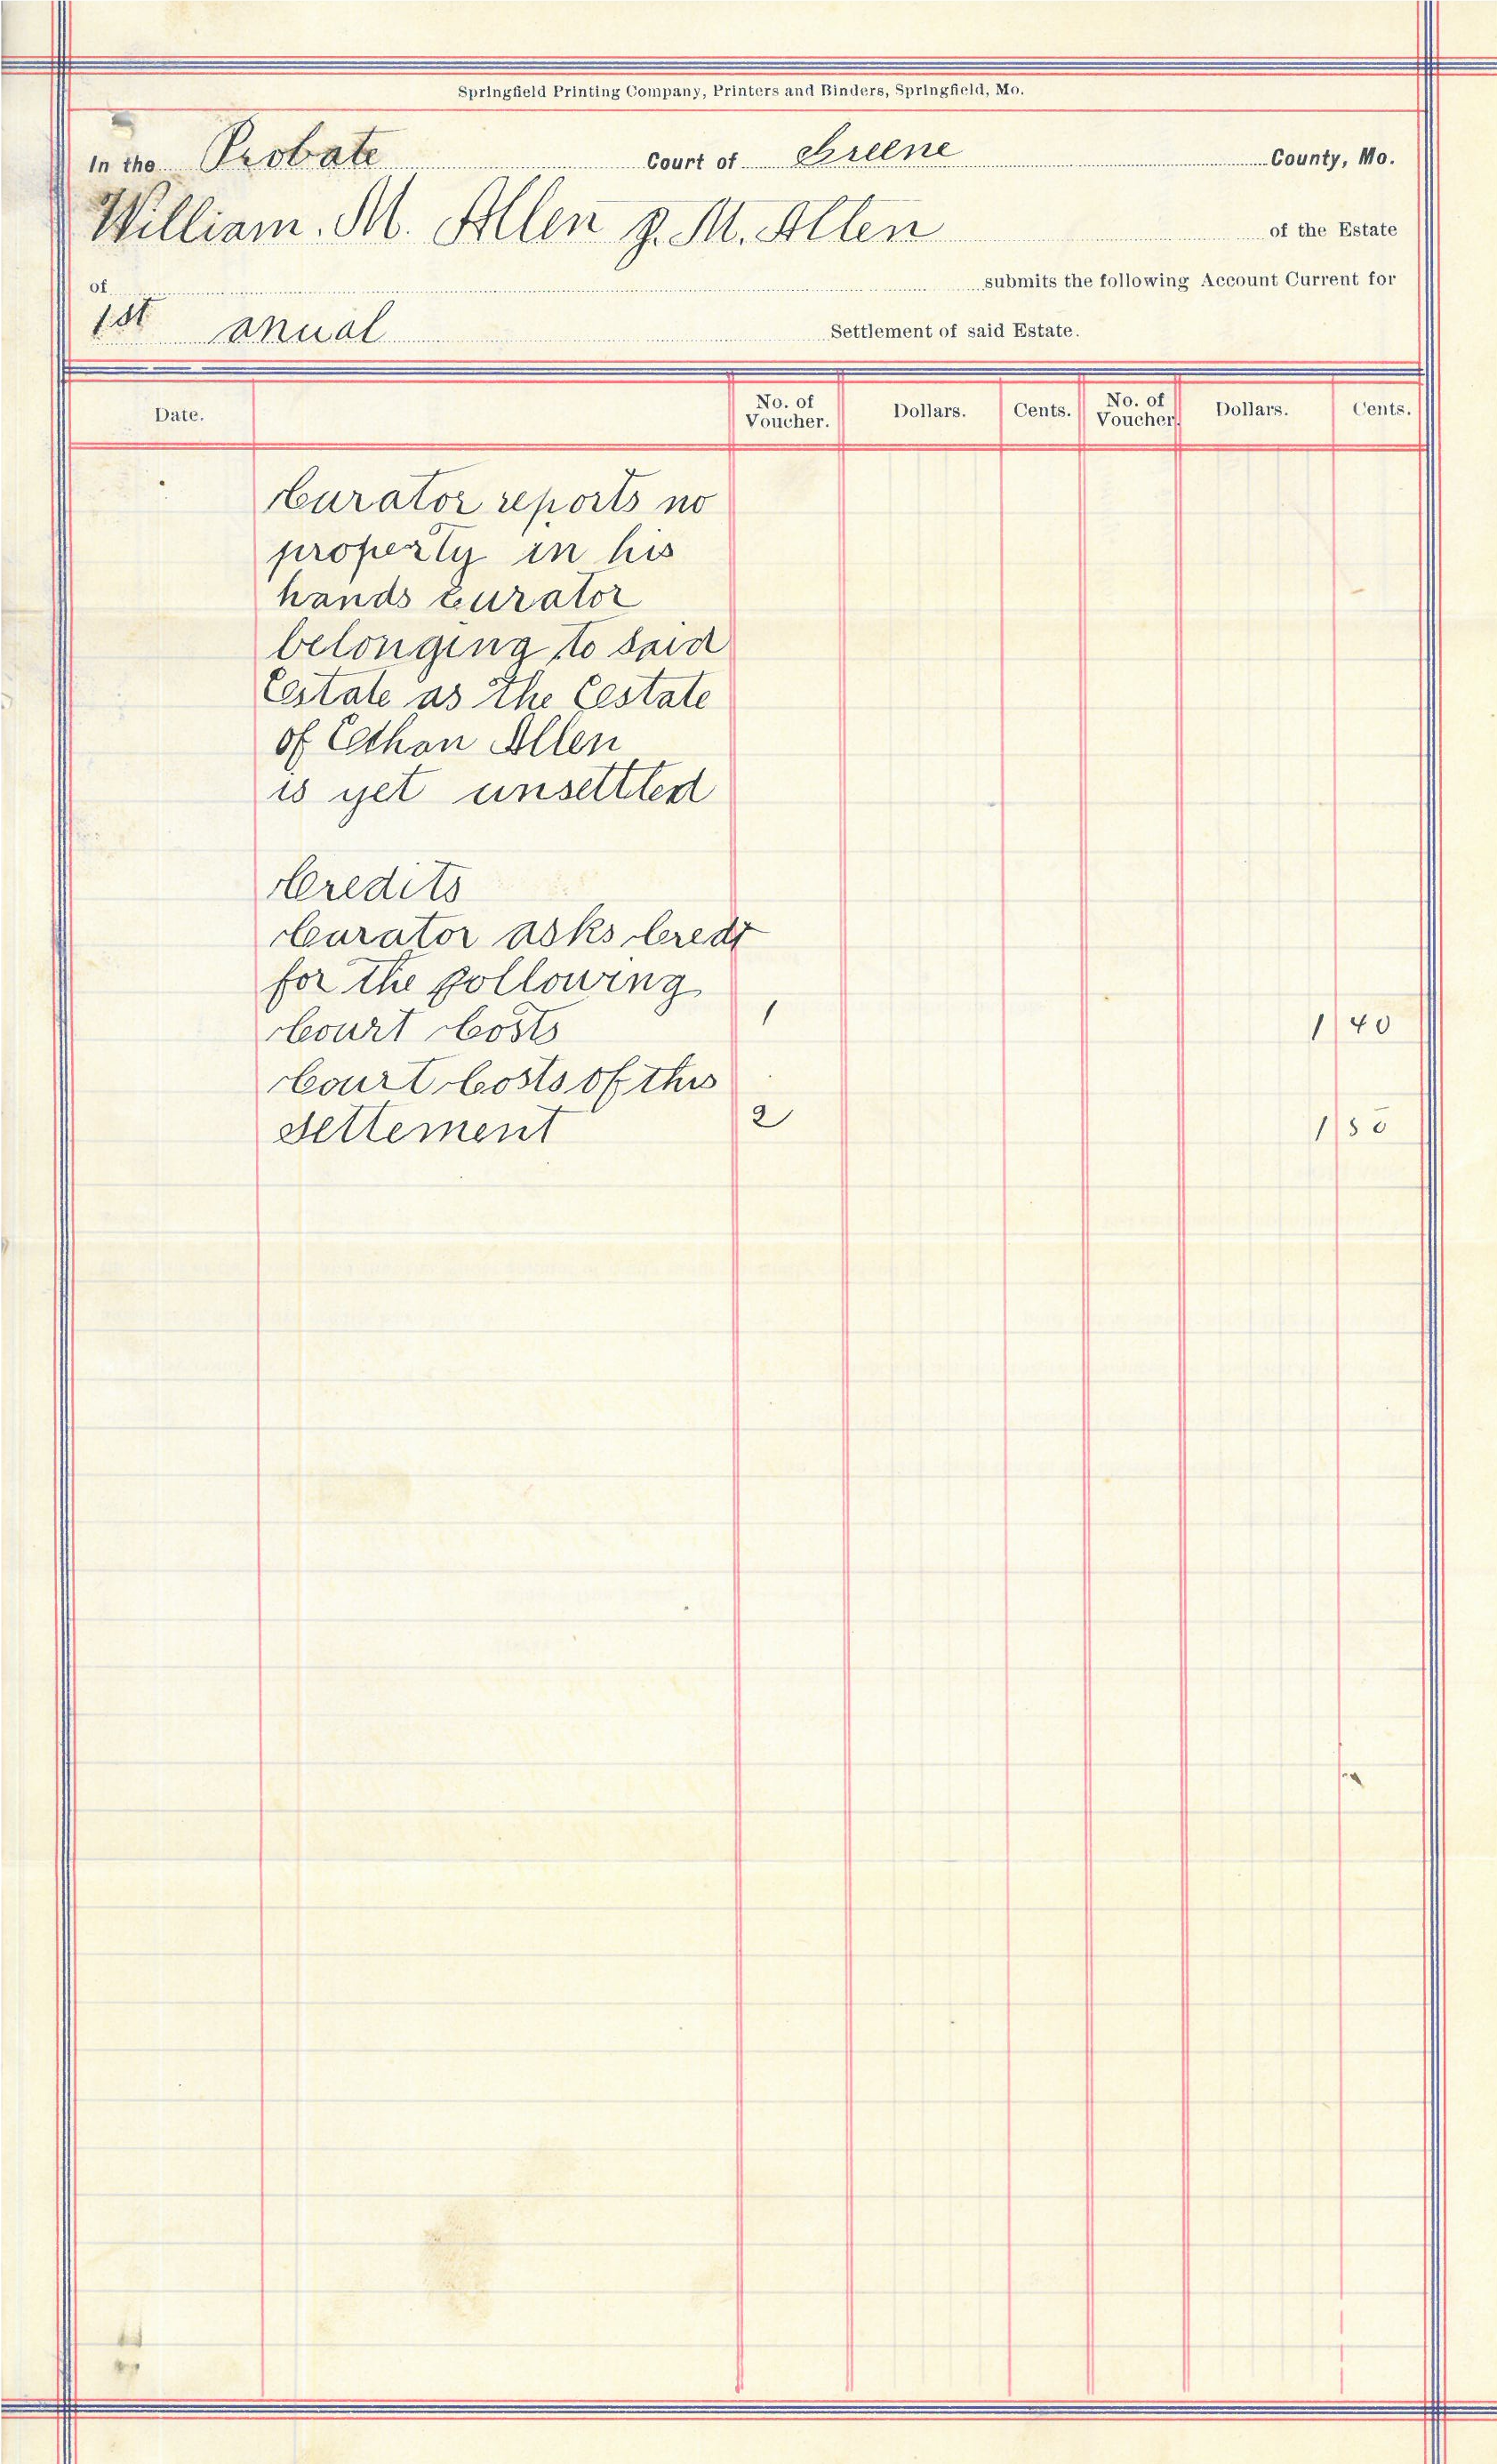 Springfield Printing Company, Printers and Binders, Springfield, Mo.
In the Probate Court of Greene County, Mo.
William. M. Allen J. M. Allen of the Estate
of submits the following Account Current for
1st anual Settlement of said Estate.
Date. No. of Voucher. Dollars. Cents. No. of Voucher. Dollars. Cents.
Curator reports no
property in his
hands curator
belonging to said
Estate as the Estate
of Ethan Allen
is yet unsettled
Credits
Curator asks Credt
for the following
Court Costs 1 1 40
Court Costs of this
Settement 2 1 50